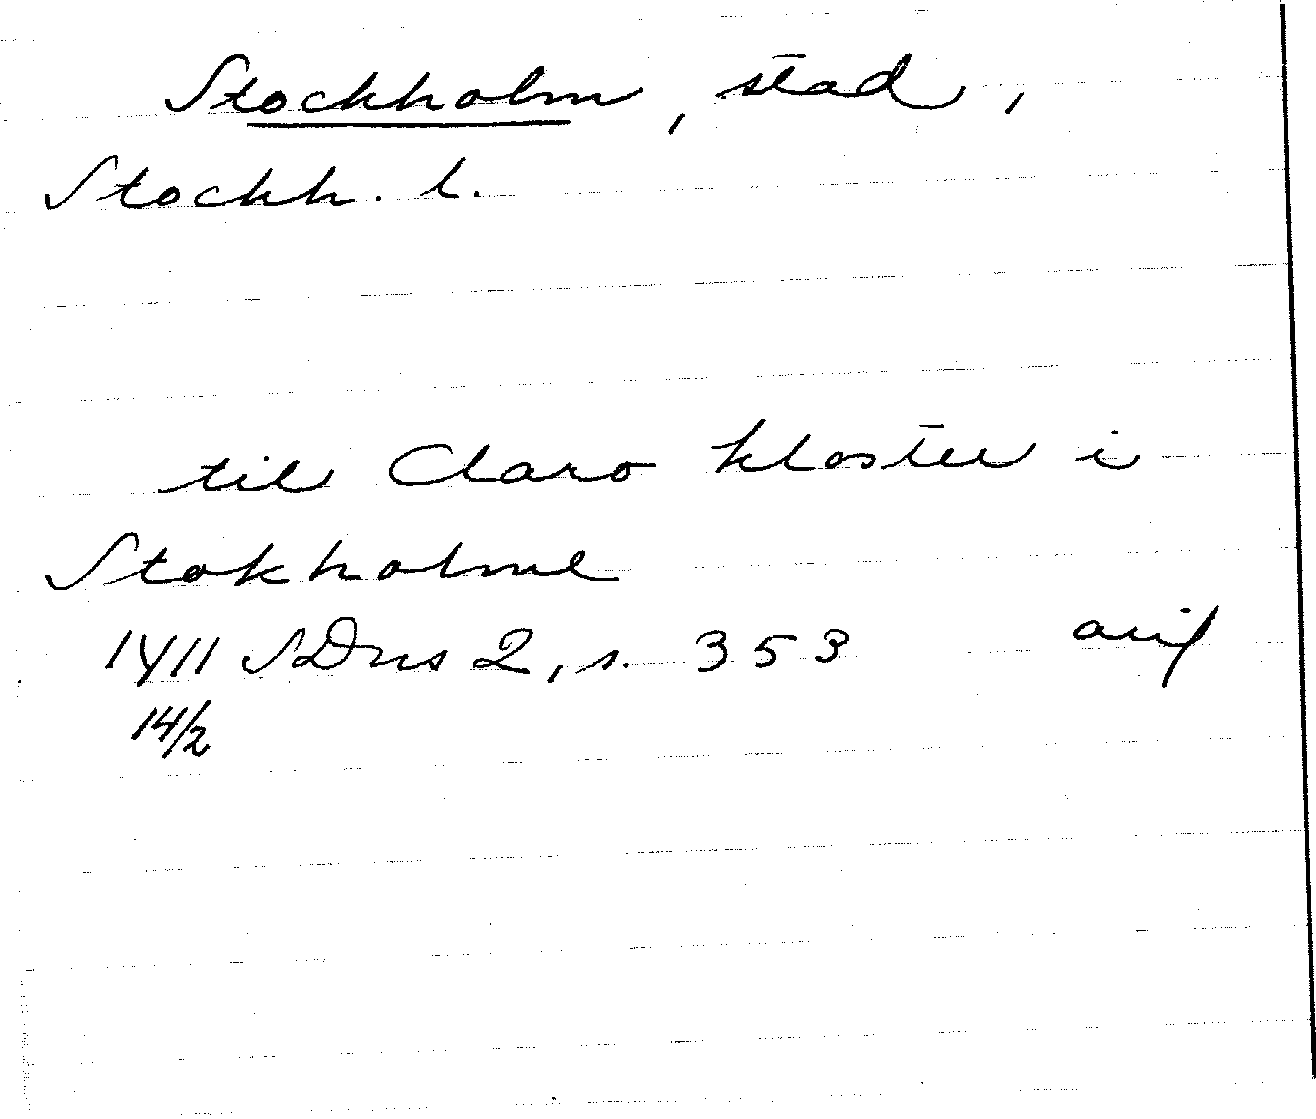 Stockholm, stad,
Stockh. l.
til Claro kloster i
Stokholme
1411 SDns 2, s. 353 avif
14/2